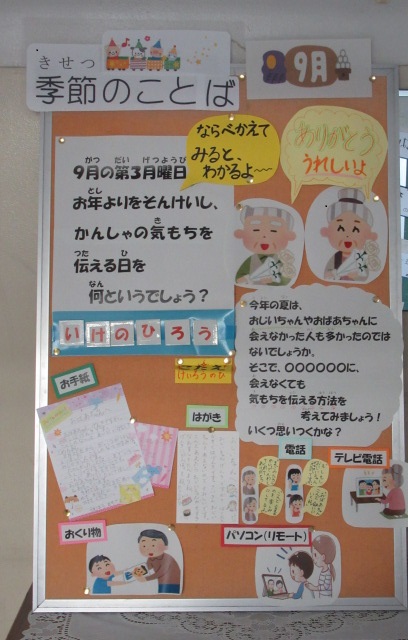 きせつ
季節のことば
9月
ならべかえて
みると、
わかるよ〜
ありがとう
うれしいよ
がつ だい げつようび
9月の第3月曜日
とし
お年よりをそんけいし、
き
かんしゃの気もちを
つた ひ
伝える日を
なん
何というでしょう?
いけのひろう
けいろうのひ
今年の夏は、
おじいちゃんやおばあちゃんに
会えなかった人も多かったのでは
ないでしょうか。
そこで、〇〇〇〇〇〇に、
会えなくても
気もちを伝える方法を
考えてみましょう!
いくつ思いつくかな?
お手紙
はがき
電話
テレビ電話
おくり物
パソコン(リモート)